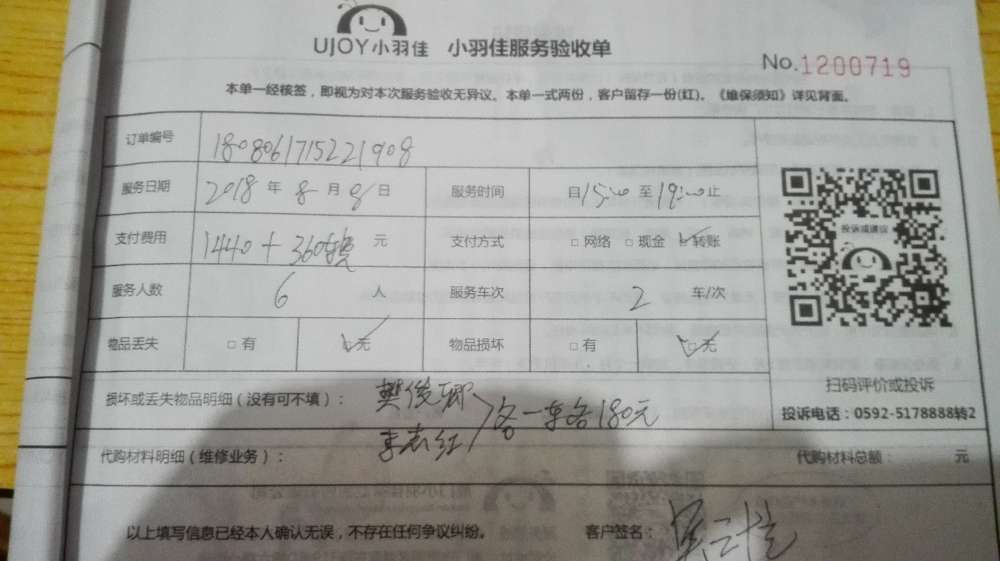 UJOY小羽佳 小羽佳服务验收单
No.1200719
本单一经核签，即视为对本次服务验收无异议。本单一式两份，客户留存一份(红)。《维保须知》详见背面。
订单编号 1808061715221908
服务日期 2018年8月8日 服务时间 自15:00至19:00止
支付费用 1440+360 元 支付方式 □网络 □现金 ☑转账
投诉或建议
服务人数 6人 服务车次 2车/次
物品丢失 □有 ☑无 物品损坏 □有 ☑无
扫码评价或投诉
投诉电话：0592-5178888转2
损坏或丢失物品明细（没有可不填）：樊俊卿
李志红 各一车各180元
代购材料明细（维修业务）： 代购材料总额： 元
以上填写信息已经本人确认无误，不存在任何争议纠纷。 客户签名：